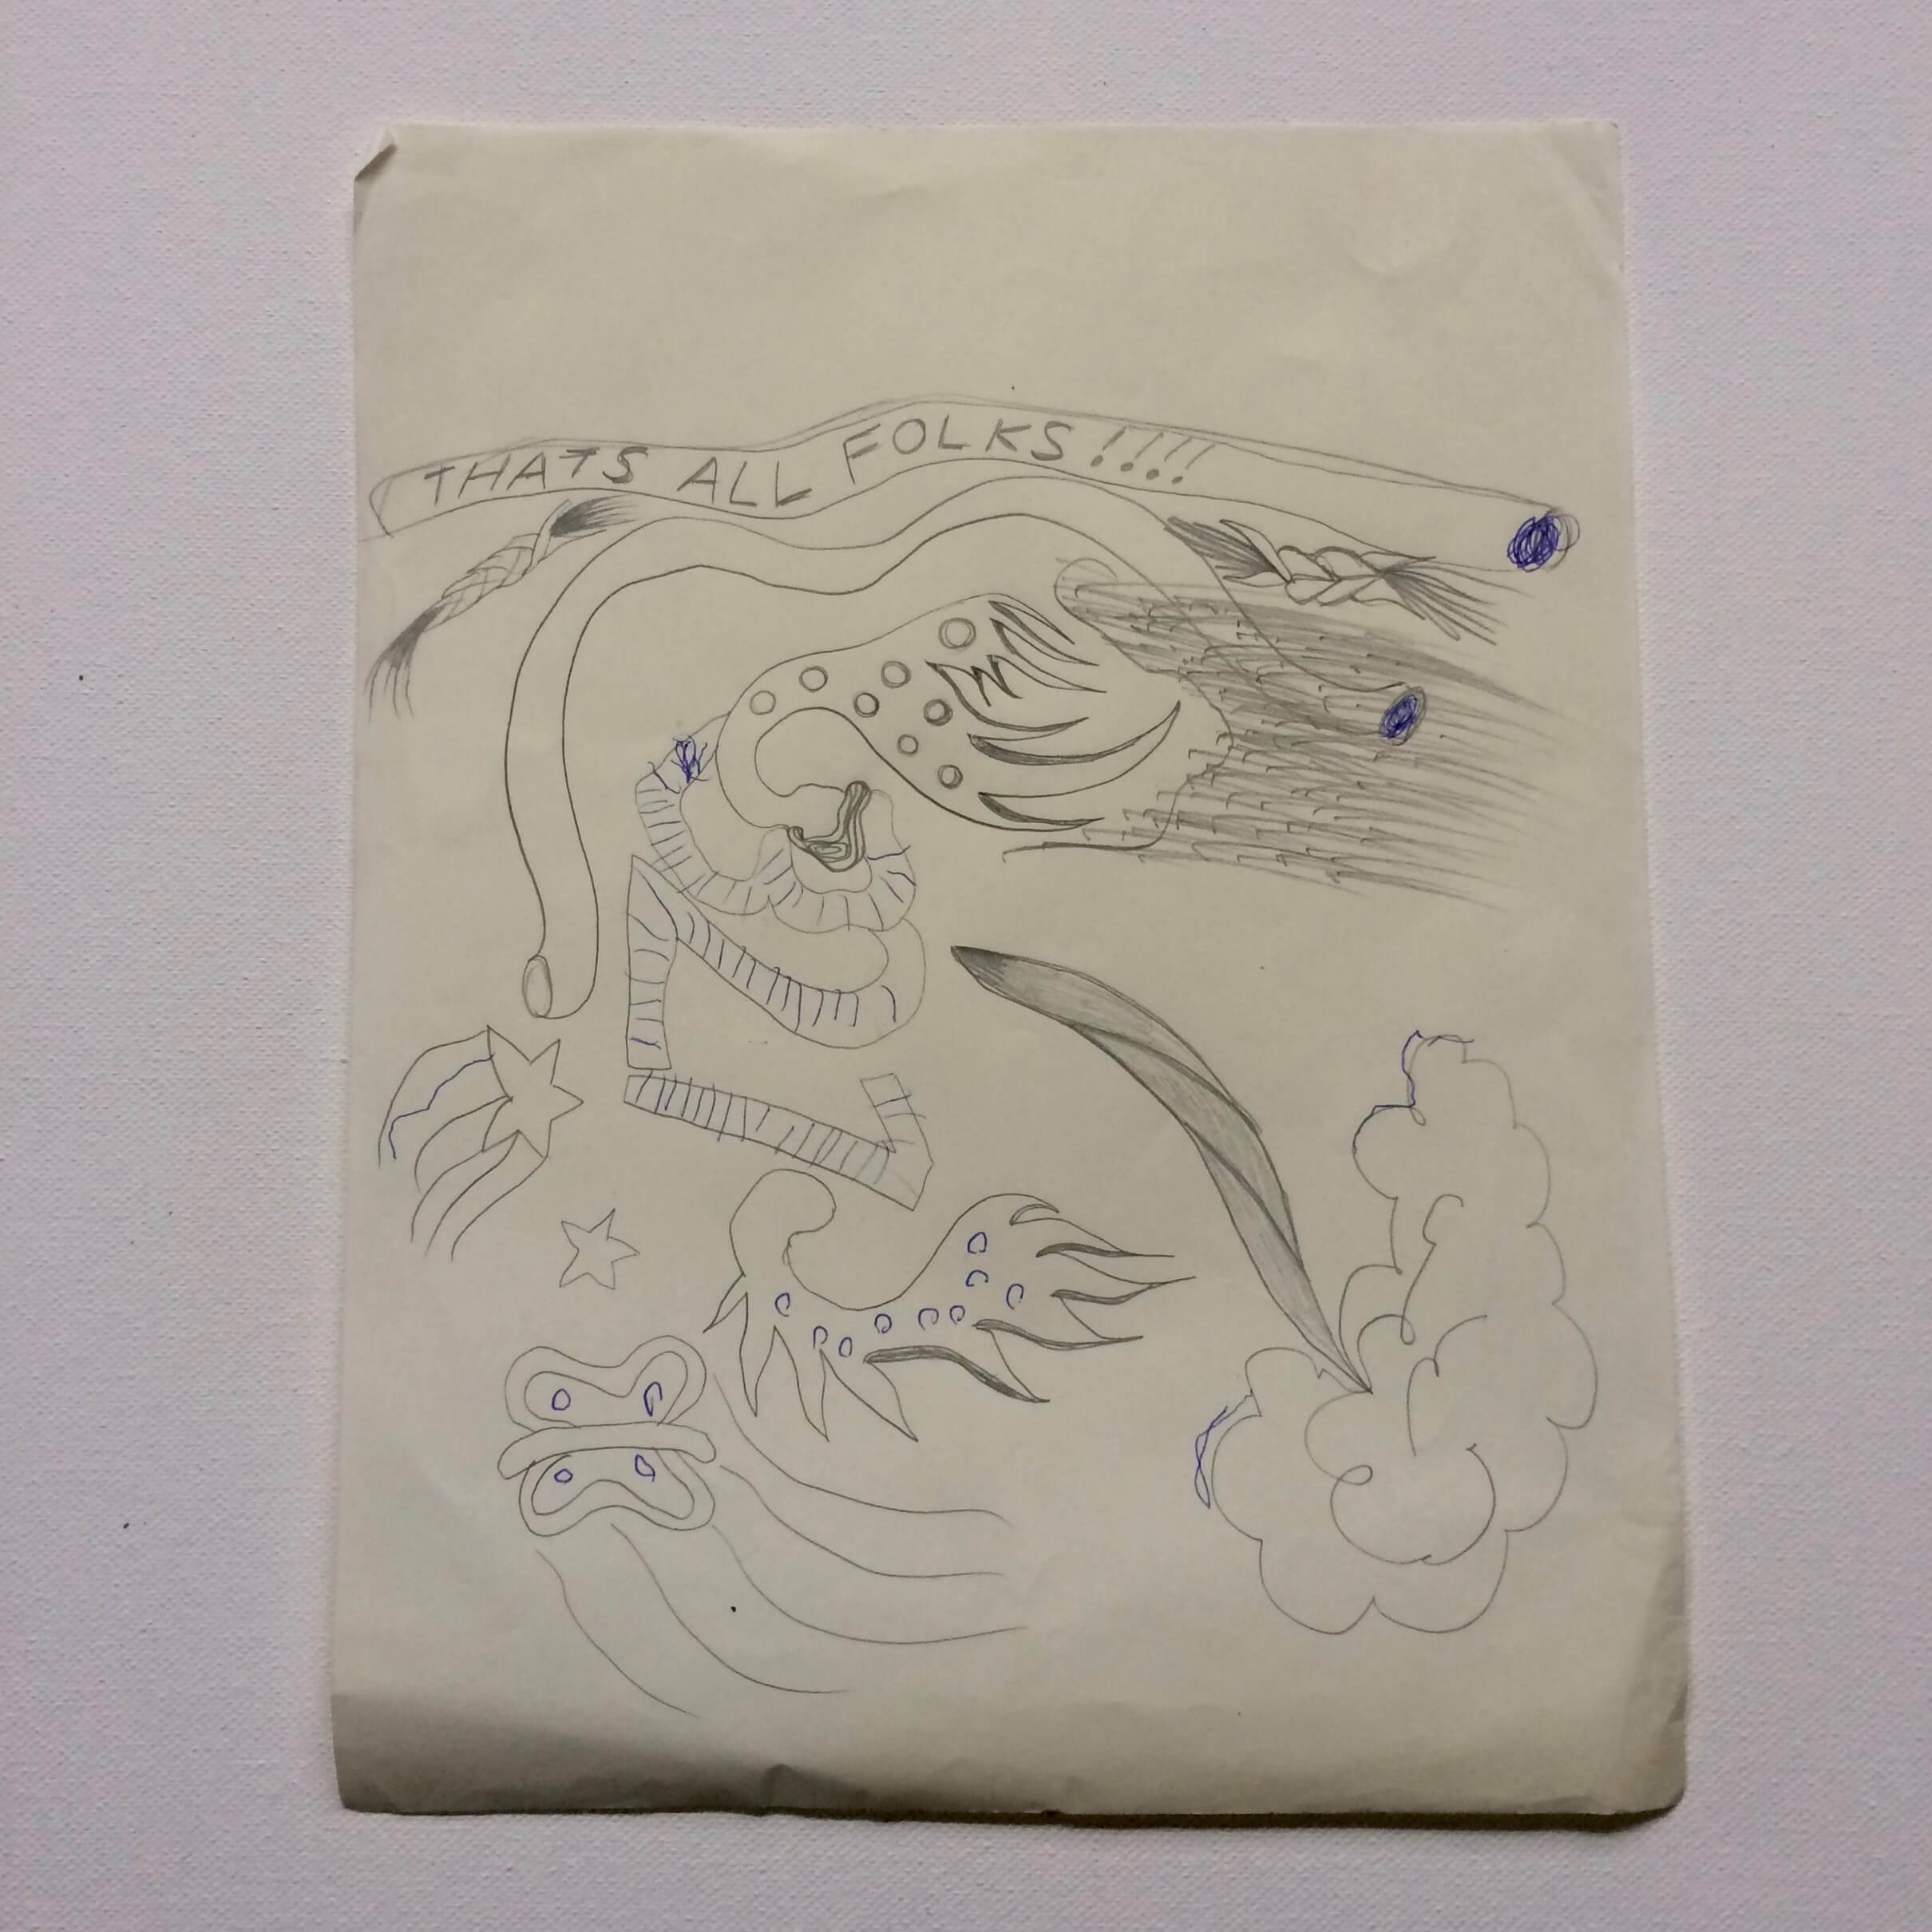 THATS ALL FOLKS!!!!